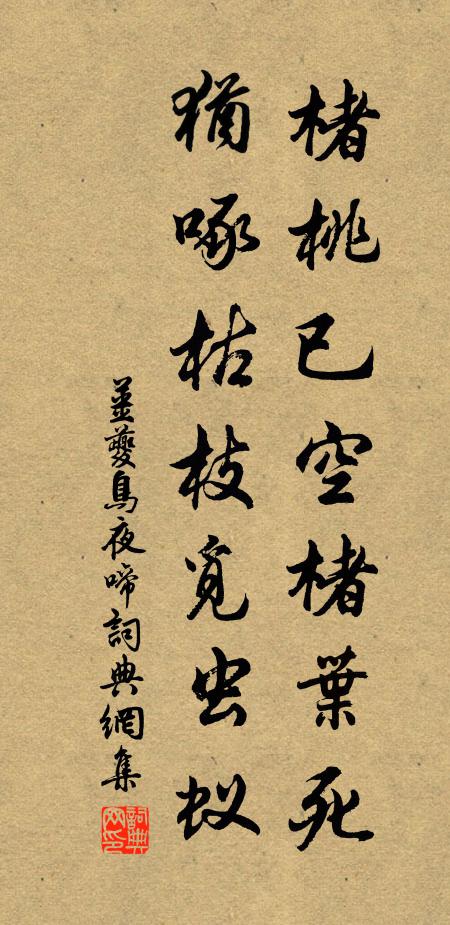 楮桃已空楮葉死
猶啄枯枝覓虫蚁
姜夔烏夜啼詞典網集
詞典网印